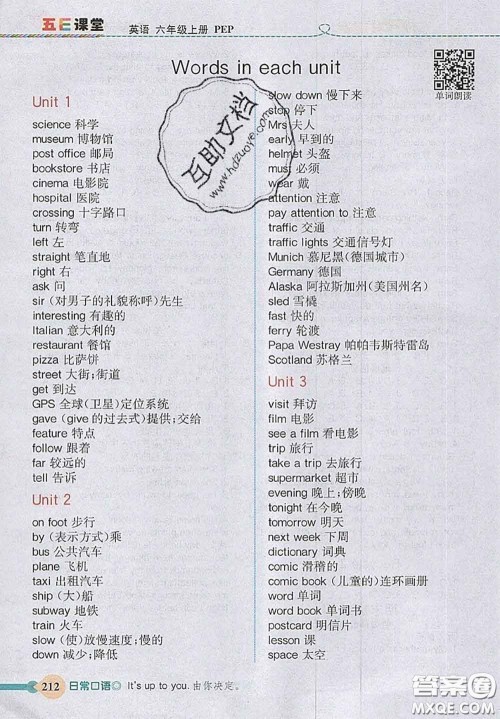 五E课堂
英语 六年级上册 PEP
Words in each unit
单词朗读
Unit 1
science 科学
museum 博物馆
post office 邮局
bookstore 书店
cinema 电影院
hospital 医院
crossing 十字路口
turn 转弯
left 左
straight 笔直地
right 右
ask 问
sir (对男子的礼貌称呼)先生
interesting 有趣的
Italian 意大利的
restaurant 餐馆
pizza 比萨饼
street 大街;街道
get 到达
GPS 全球(卫星)定位系统
gave (give 的过去式)提供;交给
feature 特点
follow 跟着
far 较远的
tell 告诉
Unit 2
on foot 步行
by (表示方式)乘
bus 公共汽车
plane 飞机
taxi 出租汽车
ship (大)船
subway 地铁
train 火车
slow (使)放慢速度;慢的
down 减少;降低
slow down 慢下来
stop 停下
Mrs 夫人
early 早到的
helmet 头盔
must 必须
wear 戴
attention 注意
pay attention to 注意
traffic 交通
traffic lights 交通信号灯
Munich 慕尼黑(德国城市)
Germany 德国
Alaska 阿拉斯加州(美国州名)
sled 雪橇
fast 快的
ferry 轮渡
Papa Westray 帕帕韦斯特雷岛
Scotland 苏格兰
Unit 3
visit 拜访
film 电影
see a film 看电影
trip 旅行
take a trip 去旅行
supermarket 超市
evening 晚上;傍晚
tonight 在今晚
tomorrow 明天
next week 下周
dictionary 词典
comic 滑稽的
comic book (儿童的)连环画册
word 单词
word book 单词书
postcard 明信片
lesson 课
space 太空
互助文档
www.hdzuoye.com
212 日常口语◎ It's up to you. 由你决定。
答案圈
MXQE.COM